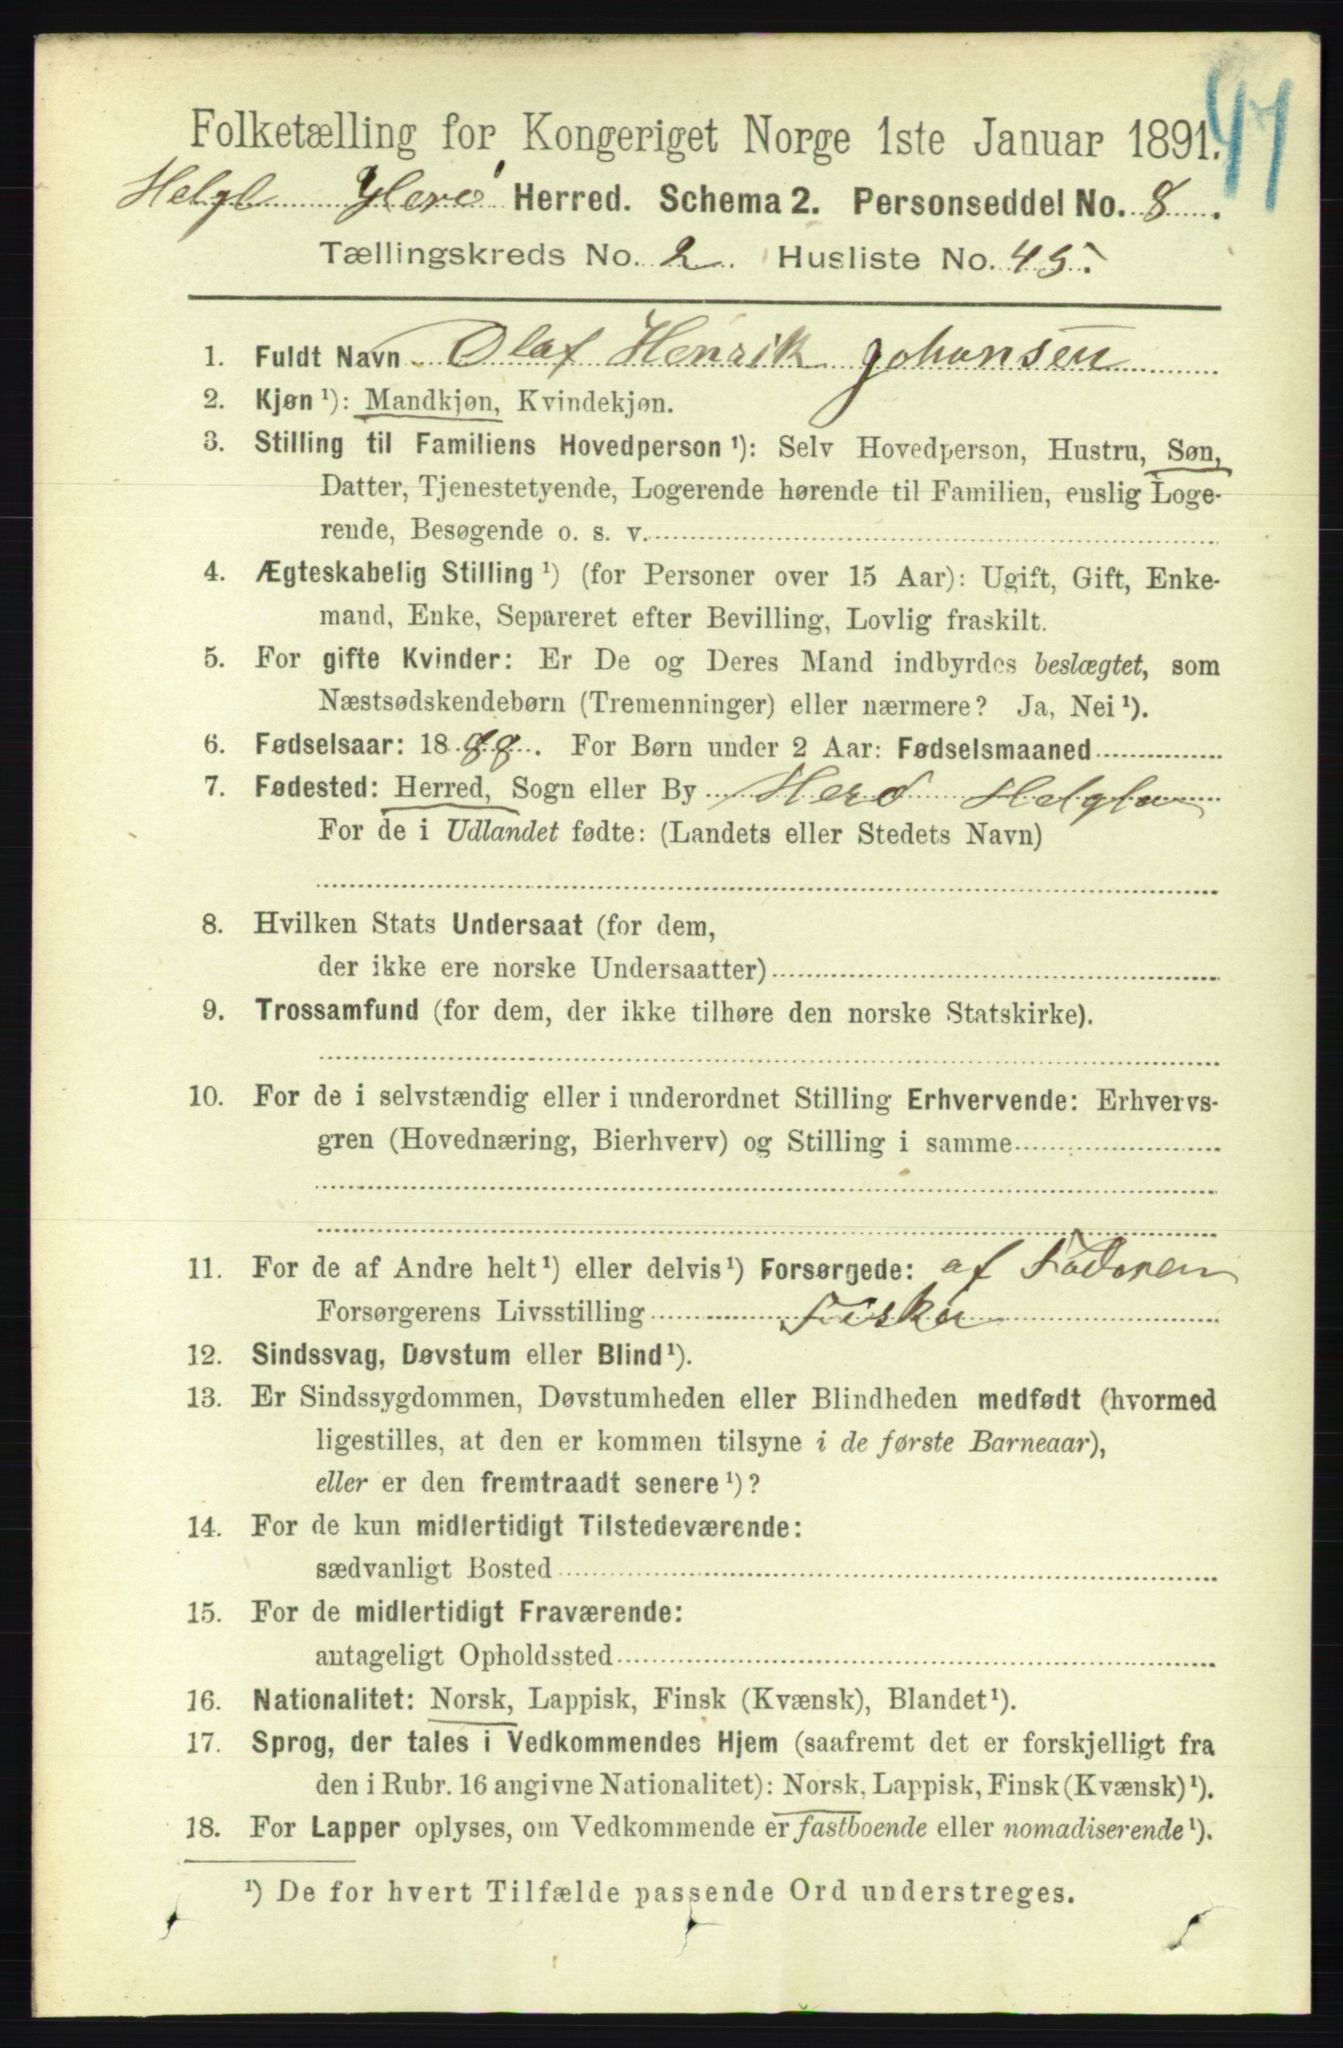 47
Folketælling for Kongeriget Norge 1ste Januar 1891.
Helgl Herø Herred. Schema 2. Personseddel No. 8.
Tællingskreds No. 2. Husliste No. 45.
1. Fuldt Navn Olaf Henrik Johansen
2. Kjøn ¹): Mandkjøn, Kvindekjøn.
3. Stilling til Familiens Hovedperson ¹): Selv Hovedperson, Hustru, Søn,
Datter, Tjenestetyende, Logerende hørende til Familien, enslig Loge-
rende, Besøgende o. s. v.
4. Ægteskabelig Stilling ¹) (for Personer over 15 Aar): Ugift, Gift, Enke-
mand, Enke, Separeret efter Bevilling, Lovlig fraskilt.
5. For gifte Kvinder: Er De og Deres Mand indbyrdes beslægtet, som
Næstsødskendebørn (Tremenninger) eller nærmere? Ja, Nei ¹).
6. Fødselsaar: 1888. For Børn under 2 Aar: Fødselsmaaned
7. Fødested: Herred, Sogn eller By Herø
For de i Udlandet fødte: (Landets eller Stedets Navn)
8. Hvilken Stats Undersaat (for dem,
der ikke ere norske Undersaatter)
9. Trossamfund (for dem, der ikke tilhøre den norske Statskirke).
10. For de i selvstændig eller i underordnet Stilling Erhvervende: Erhvervs-
gren (Hovednæring, Bierhverv) og Stilling i samme
11. For de af Andre helt ¹) eller delvis ¹) Forsørgede: af Faderen
Forsørgerens Livsstilling Fisker
12. Sindssvag, Døvstum eller Blind ¹).
13. Er Sindssygdommen, Døvstumheden eller Blindheden medfødt (hvormed
ligestilles, at den er kommen tilsyne i de første Barneaar),
eller er den fremtraadt senere ¹)?
14. For de kun midlertidigt Tilstedeværende:
sædvanligt Bosted
15. For de midlertidigt Fraværende:
antageligt Opholdssted
16. Nationalitet: Norsk, Lappisk, Finsk (Kvænsk), Blandet ¹).
17. Sprog, der tales i Vedkommendes Hjem (saafremt det er forskjelligt fra
den i Rubr. 16 angivne Nationalitet): Norsk, Lappisk, Finsk (Kvænsk) ¹).
18. For Lapper oplyses, om Vedkommende er fastboende eller nomadiserende ¹).
¹) De for hvert Tilfælde passende Ord understreges.